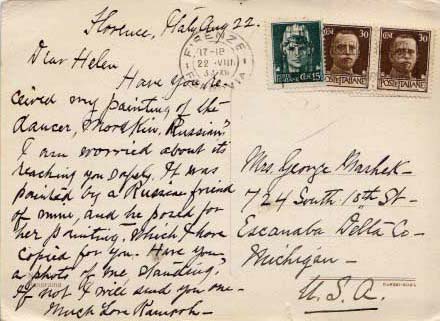 Florence, Italy Aug 22.
FIRENZE
17-18
22 - VIII
Dear Helen
Have you re-
ceived my painting of the
dancer, Mordkin, Russian?
I am worried about its
reaching you safely. It was
painted by a Russian friend
of mine, and he posed for
her painting, which I have
copied for you. Have you
a photo of me standing?
If not I will send you one—
Much Love
CENT 15
POSTE ITALIANE
CENT 30
POSTE ITALIANE
CENT 30
POSTE ITALIANE
Mrs. George Mashek—
724 South 10th St—
Escanaba Delta Co—
Michigan—
U.S.A.